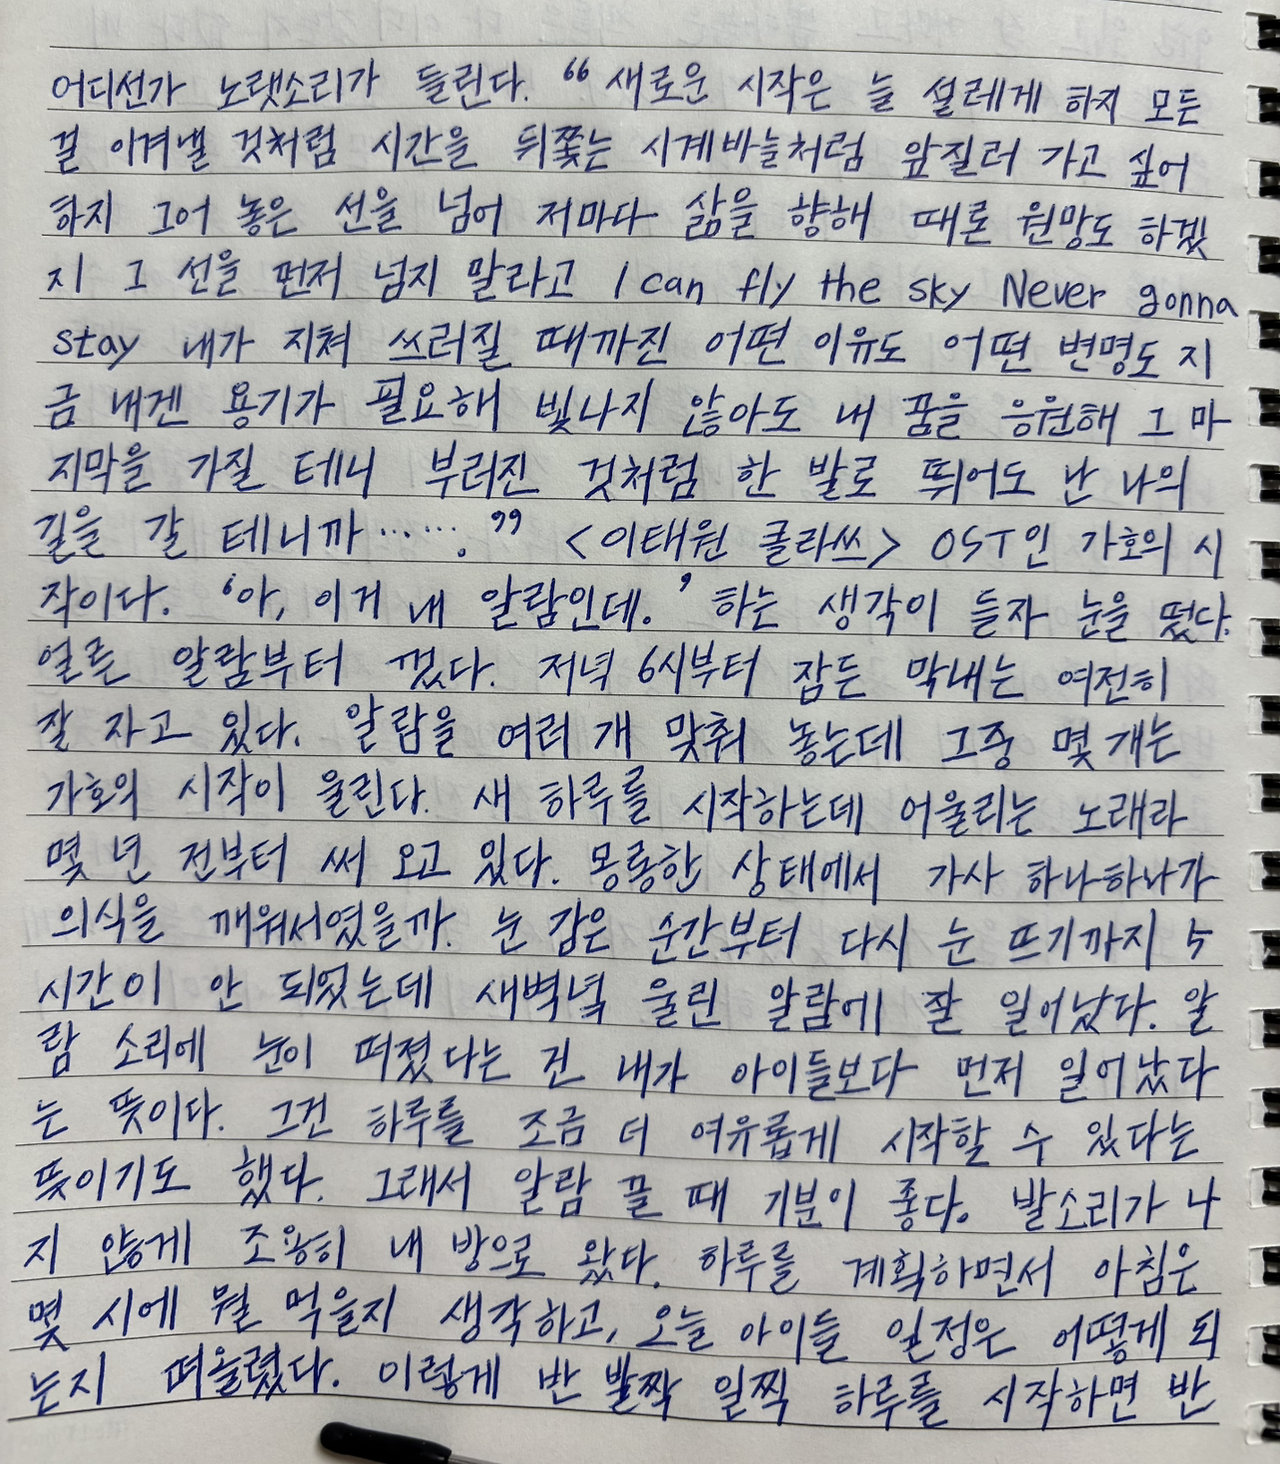 어디선가 노랫소리가 들린다. “새로운 시작은 늘 설레게 하지 모든
걸 이겨낼 것처럼 시간을 뒤쫓는 시계바늘처럼 앞질러 가고 싶어
하지 그어 놓은 선을 넘어 저마다 삶을 향해 때론 원망도 하겠
지 그 선을 먼저 넘지 말라고 I can fly the sky Never gonna
stay 내가 지쳐 쓰러질 때까진 어떤 이유도 어떤 변명도 지
금 내겐 용기가 필요해 빛나지 않아도 내 꿈을 응원해 그 마
지막을 가질 테니 부러진 것처럼 한 발로 뛰어도 난 나의
길을 갈 테니까…….” <이태원 클라쓰> OST인 가호의 시
작이다. ‘아, 이거 내 알람인데.’ 하는 생각이 들자 눈을 떴다.
얼른 알람부터 껐다. 저녁 6시부터 잠든 막내는 여전히
잘 자고 있다. 알람을 여러 개 맞춰 놓는데 그중 몇 개는
가호의 시작이 울린다. 새 하루를 시작하는데 어울리는 노래라
몇 년 전부터 써 오고 있다. 몽롱한 상태에서 가사 하나하나가
의식을 깨워서였을까. 눈 감은 순간부터 다시 눈 뜨기까지 5
시간이 안 되었는데 새벽녘 울린 알람에 잘 일어났다. 알
람 소리에 눈이 떠졌다는 건 내가 아이들보다 먼저 일어났다
는 뜻이다. 그건 하루를 조금 더 여유롭게 시작할 수 있다는
뜻이기도 했다. 그래서 알람 끌 때 기분이 좋다. 발소리가 나
지 않게 조용히 내 방으로 왔다. 하루를 계획하면서 아침은
몇 시에 뭘 먹을지 생각하고, 오늘 아이들 일정은 어떻게 되
는지 떠올렸다. 이렇게 반 발짝 일찍 하루를 시작하면 반